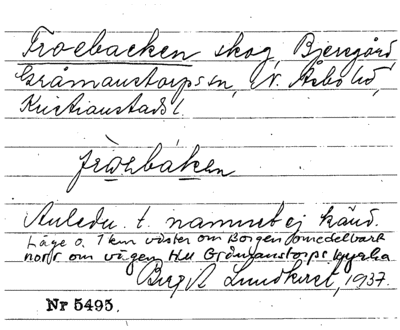 Troebacken skog, Bjersgård,
Gråmanstorps sn, N. Åsbo hd,
Kristianstads l.
fròebáken
Anledn. t. namnet ej känd.
Läge o. 1 km väster om Borgen omedelbart
norr om vägen till Gråmanstorps kyrka
Birgit Lundkvist, 1937.
Nr 5495.